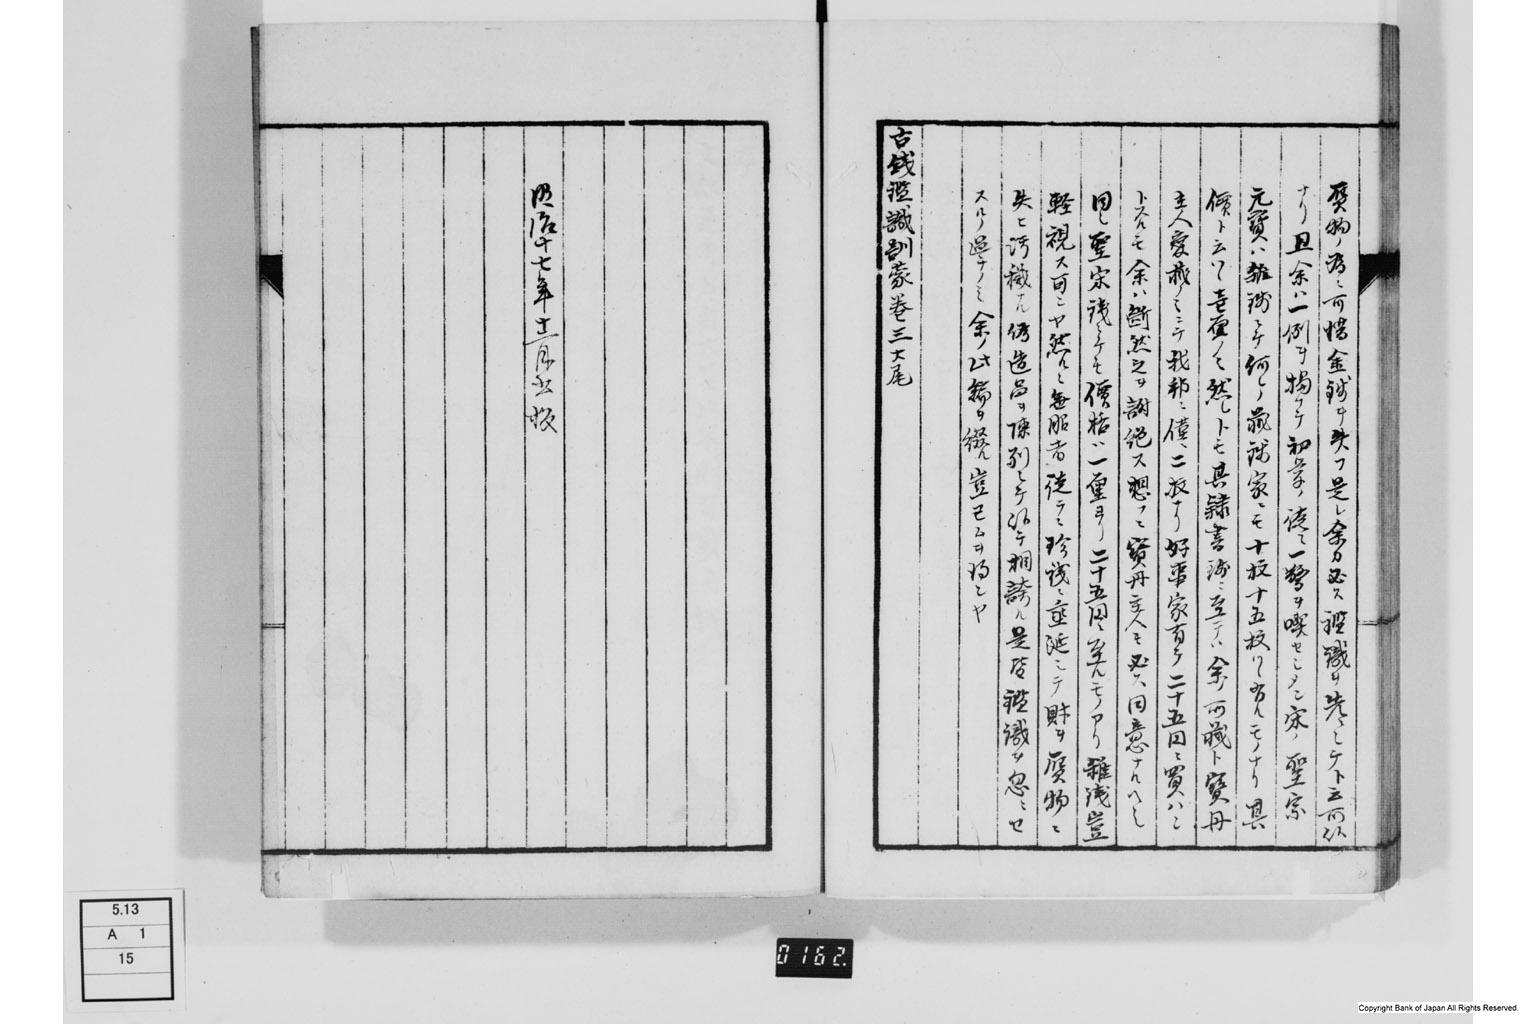 贋物ノ為ニ可惜金銭ヲ失フ是レ余カ必ス鑑識ヲ先ニシテト云所以
ナリ且余ハ一例ヲ掲ケテ初学ノ徒ニ一驚ヲ喫セシメン宋ノ聖宗
元寳ハ雑銭ニテ何レノ蔵銭家ニモ十枚十五枚ハ有ルモノナリ其
價ト云ハ壱厘ノミ然レトモ其隷書銭ニ至テハ余ノ所蔵ト寳丹
主人愛蔵ノミニテ我邦ニ僅ニ二枚ナリ好事家有テ二十五円ニ買ハン
トスルモ余ハ断然之ヲ謝絶ス想フニ寳丹主人モ必ス同意ナルヘシ
同シ聖宋銭ニテモ價格ハ一厘ヨリ二十五円ニ至ルモノアリ雑銭豈
軽視ス可ンヤ然ルニ無眼者徒ラニ珍銭ニ垂涎シテ財ヲ贋物ニ
失ヒ汚穢ナル偽造品ヲ陳列シテ以テ相誇ル是皆鑑識ヲ忽ニセ
スルノ過チノミ余ノ此編ヲ綴ル豈已ムヲ得ンヤ
古銭鑑識訓蒙巻三大尾
明治十七年十一月出板
5.13
A 1
15
0162.
Copyright Bank of Japan All Rights Reserved.